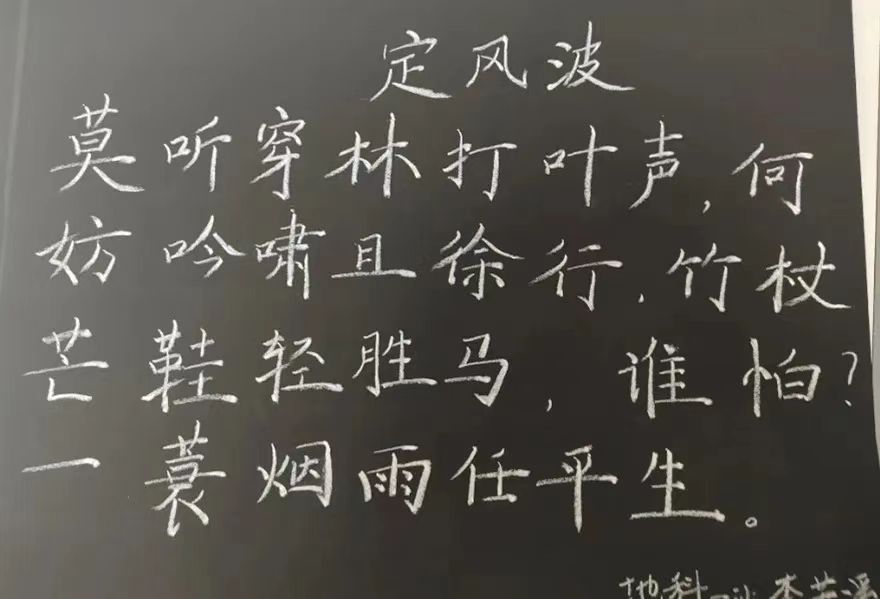 定风波
莫听穿林打叶声,何
妨吟啸且徐行.竹杖
芒鞋轻胜马,谁怕?
一蓑烟雨任平生。
地科